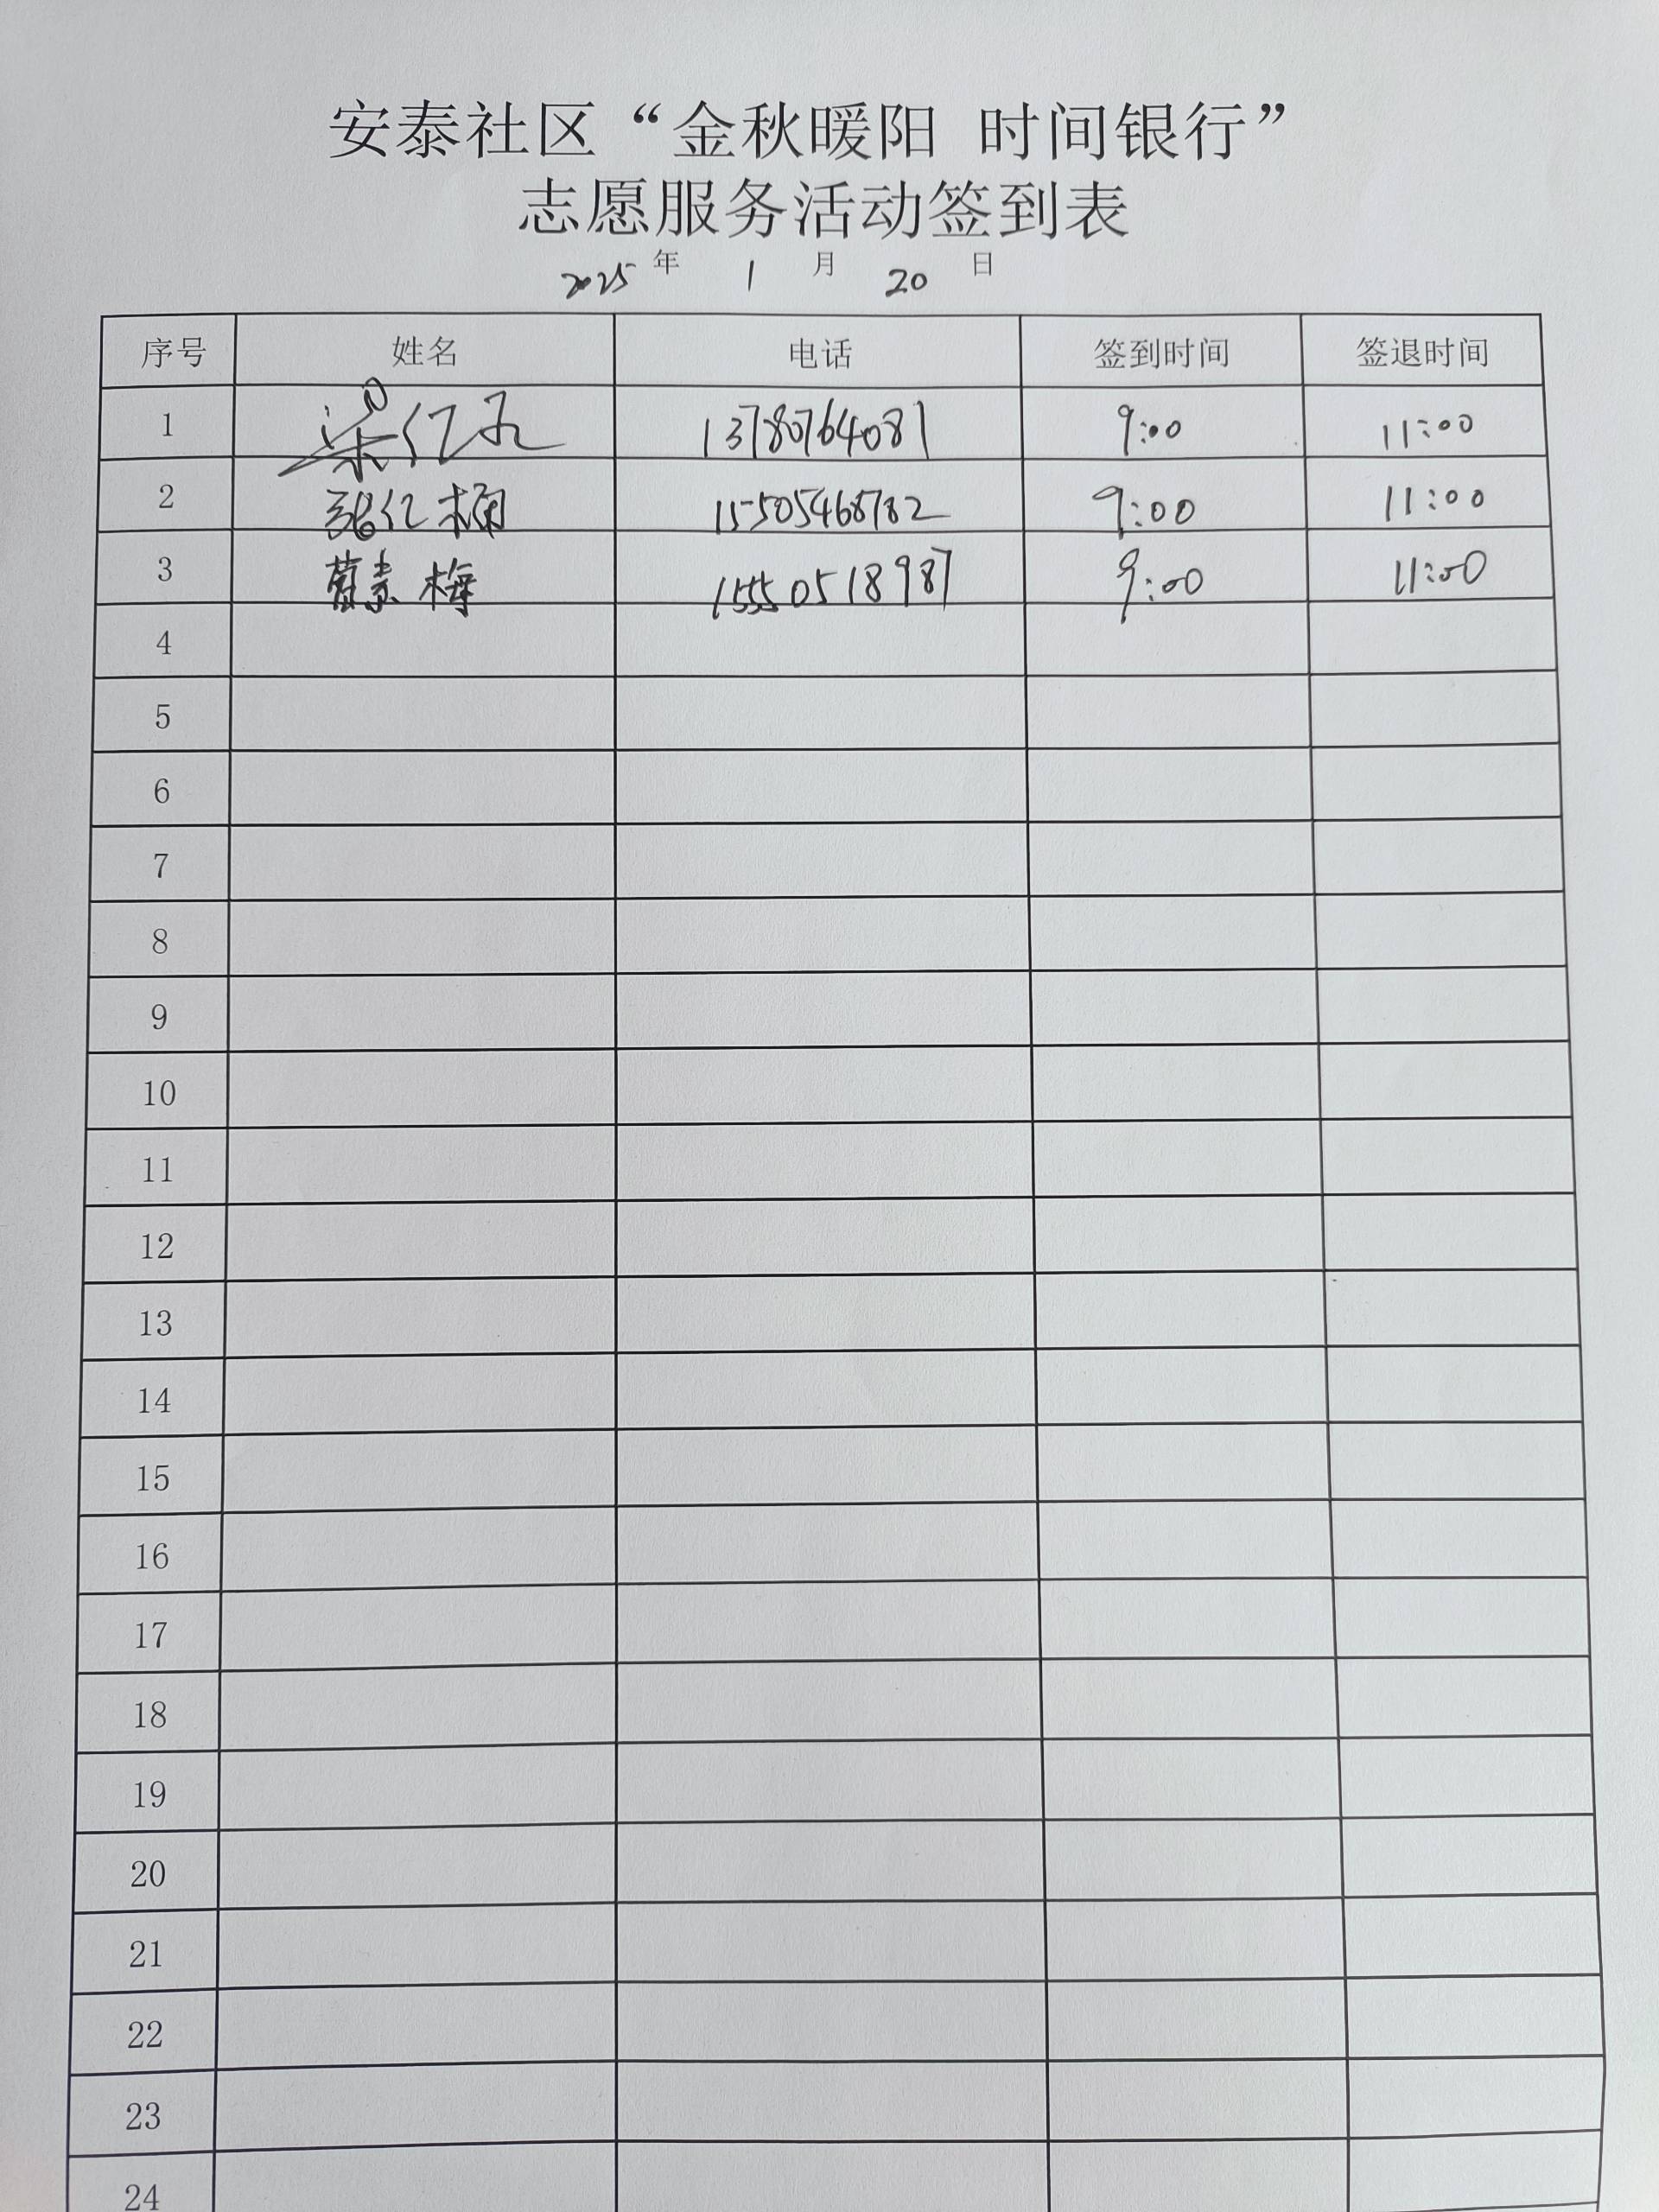 安泰社区“金秋暖阳 时间银行”
志愿服务活动签到表
2025 年 1 月 20 日
序号 姓名 电话 签到时间 签退时间
1 13780764081 9:00 11:00
2 15505468782 9:00 11:00
3 素梅 15550518987 9:00 11:00
4
5
6
7
8
9
10
11
12
13
14
15
16
17
18
19
20
21
22
23
24